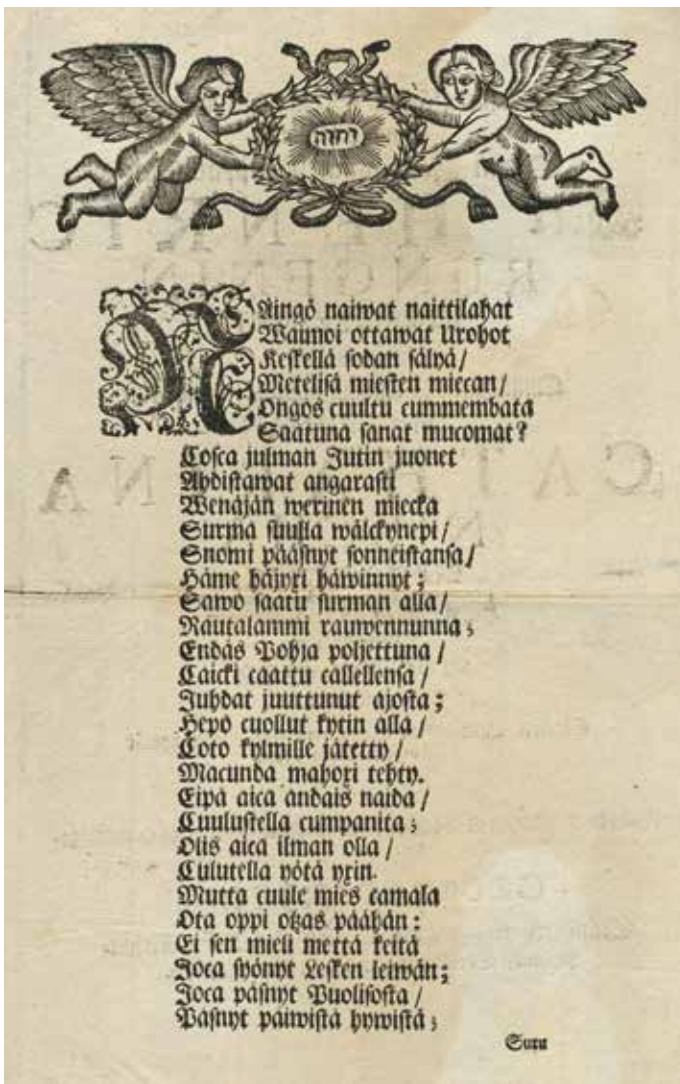 יהוה
NAingö naiwat naittilahat
Waimoi ottawat Urohot
Keskellä sodan sälyä/
Metelisä miesten miecan/
Ongos cuultu cummembata
Saatuna sanat mucomat?
Cosca julman Jutin juonet
Ahdistawat angarasti
Wenäjän werinen miecka
Surma suulla wälckynepi/
Suomi pääsnyt sonneistansa/
Häme häjyxi häwinnyt;
Sawo saatu surman alla/
Rautalammi rauwennunna;
Endäs Pohja poljettuna/
Caicki caattu callellensa/
Juhdat juuttunut ajosta;
Hepo cuollut kytin alla/
Coto kylmille jätetty/
Macunda mahoxi tehty.
Eipä aica andais naida/
Cuulustella cumpanita;
Olis aica ilman olla/
Culutella yötä yxin.
Mutta cuule mies camala
Ota oppi otzas päähän:
Ei sen mieli mettä keitä
Joca syönyt Lesken leiwän;
Joca päsnyt Puolisosta/
Päsnyt päiwistä hywistä;
Suru